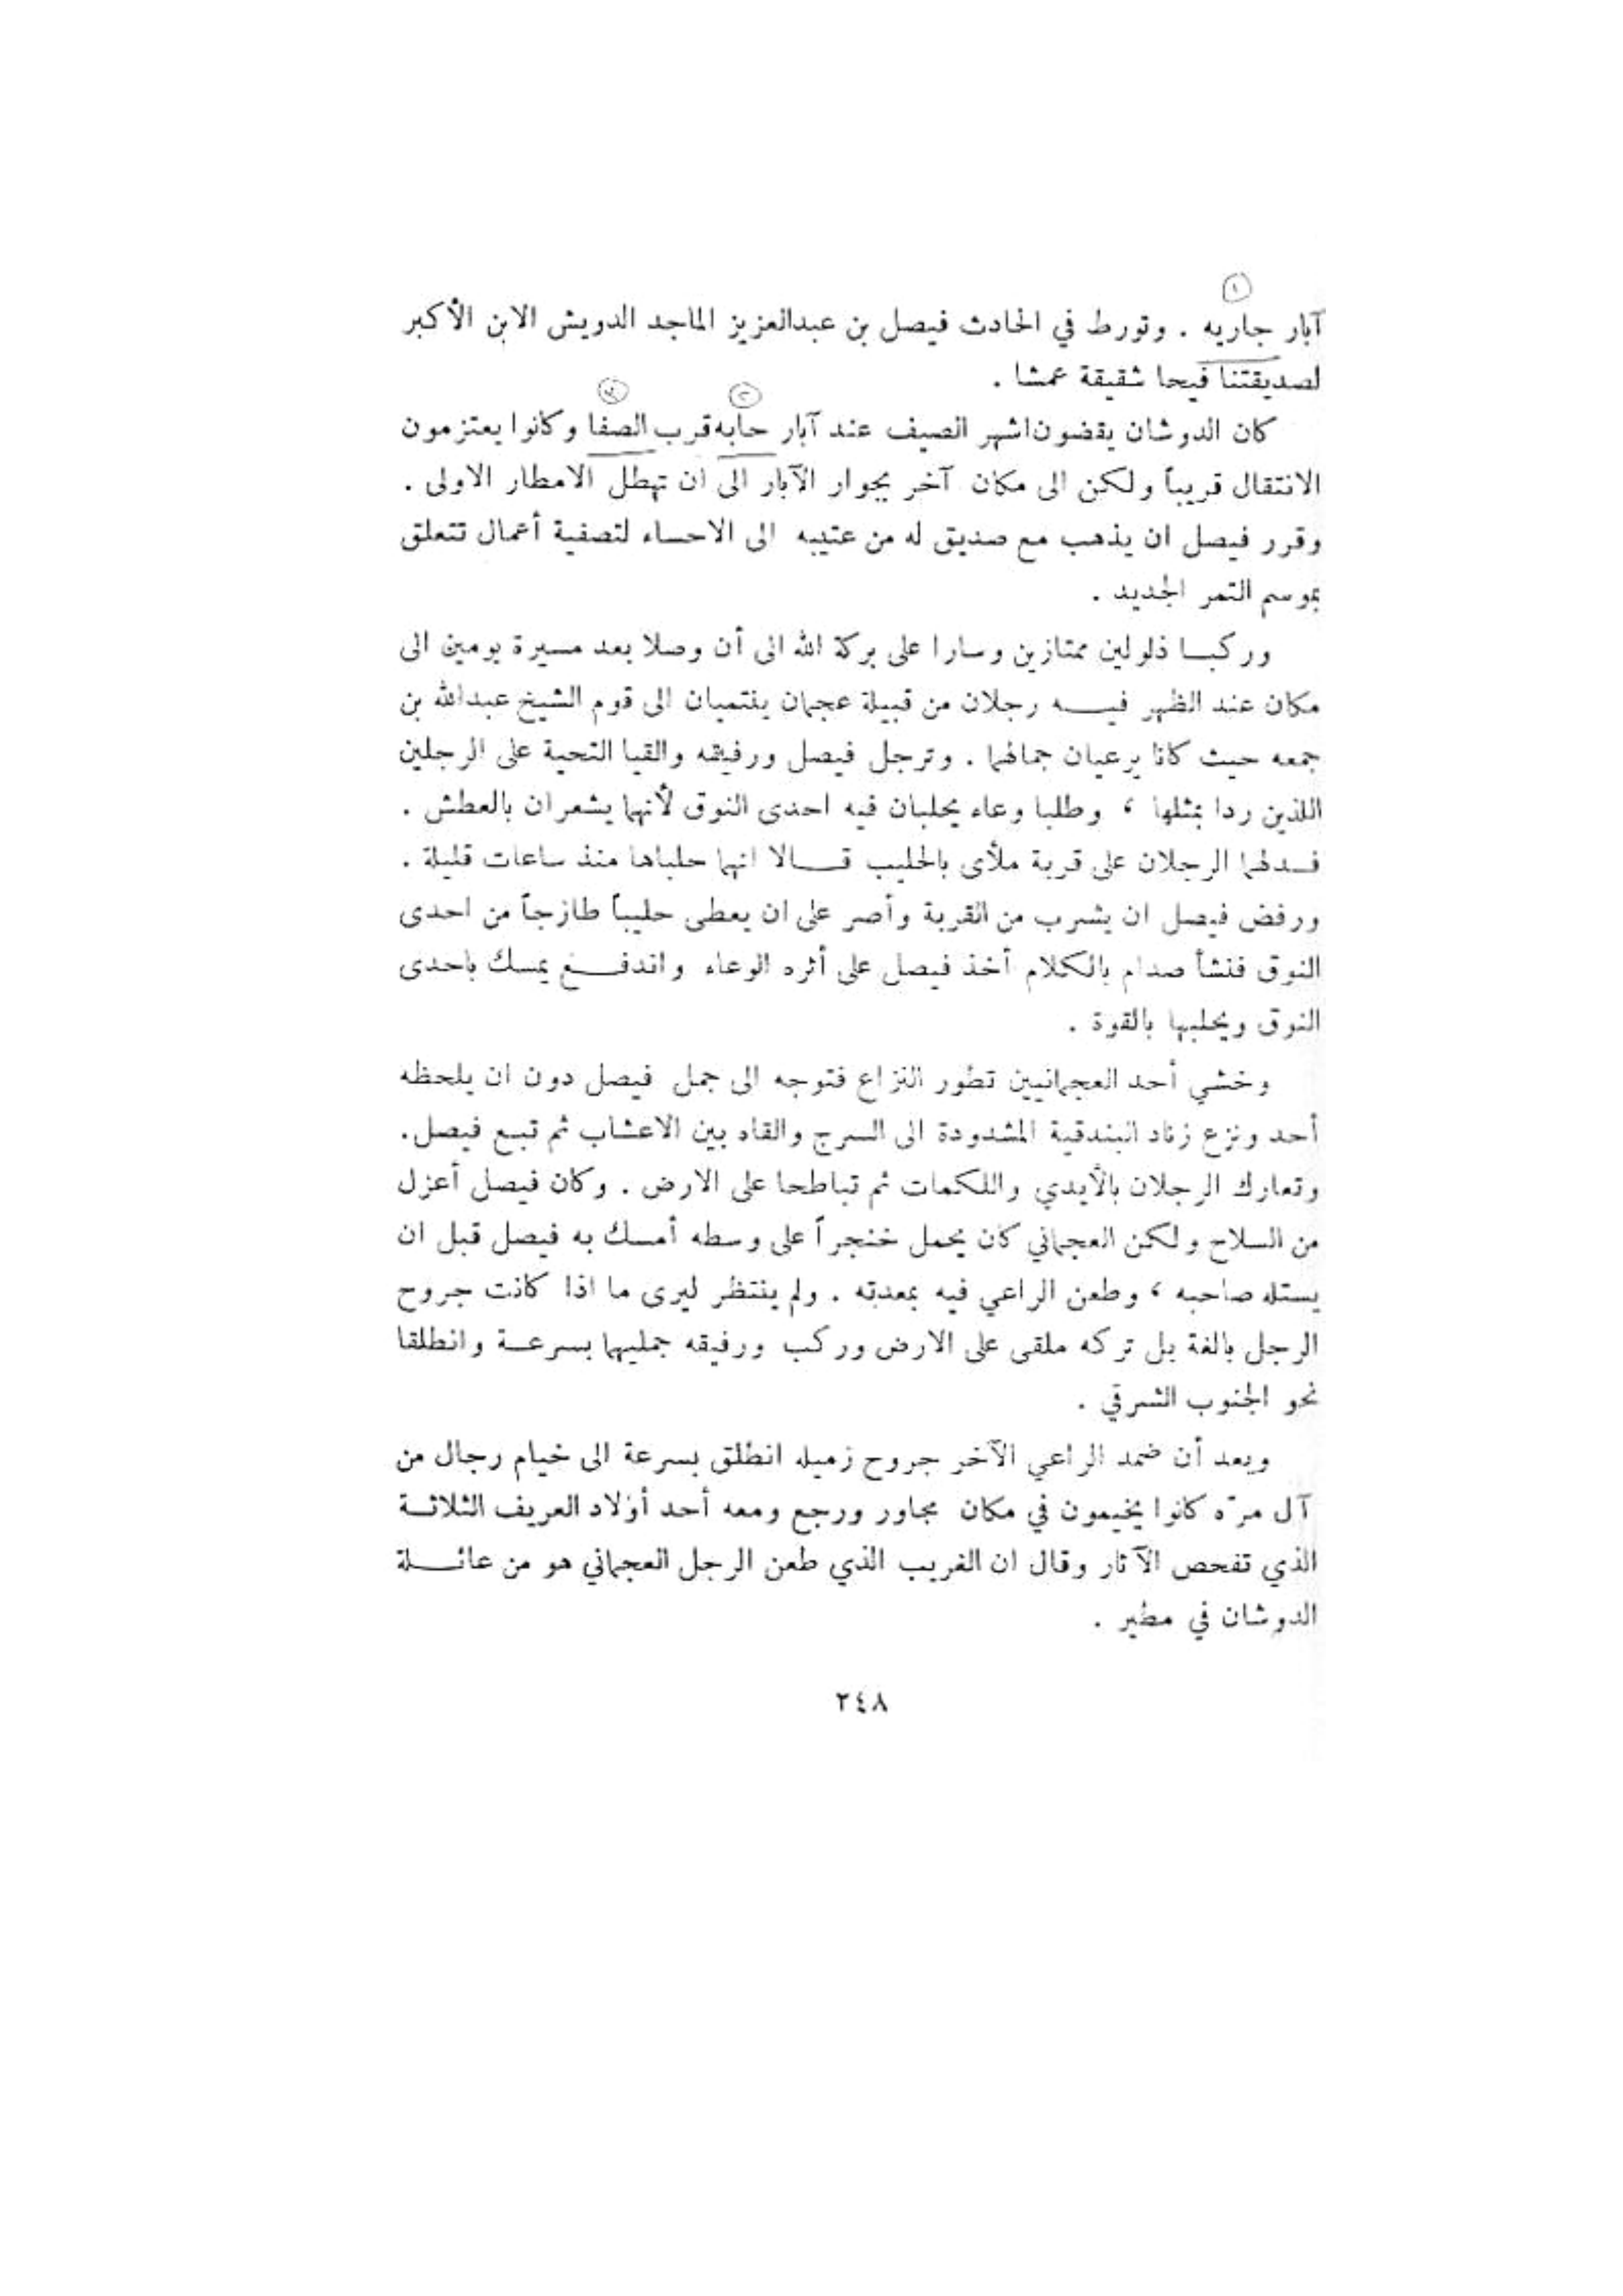 ١
آبار جاريه . وتورط في الحادث فيصل بن عبدالعزيز الماجد الدويش الابن الأكبر
لصديقتنا فيحا شقيقة عمشا .
٢ ٣
كان الدوشان يقضون اشهر الصيف عند آبار حابه قرب الصفا وكانوا يعتزمون
الانتقال قريباً ولكن الى مكان آخر بجوار الآبار الى ان تهطل الامطار الاولى .
وقرر فيصل ان يذهب مع صديق له من عتيبه الى الاحساء لتصفية أعمال تتعلق
بموسم التمر الجديد .
وركبــا ذلولين ممتازين وسارا على بركة الله الى أن وصلا بعد مسيرة يومين الى
مكان عند الظهر فيــه رجلان من قبيلة عجمان ينتميان الى قوم الشيخ عبدالله بن
جمعه حيث كانا يرعيان جمالهما . وترجل فيصل ورفيقه والقيا التحية على الرجلين
اللذين ردا بمثلها ، وطلبا وعاء يحلبان فيه احدى النوق لأنهما يشعران بالعطش .
فــدلهما الرجلان على قربة ملأى بالحليب قــالا انهما حلباها منذ ساعات قليلة .
ورفض فيصل ان يشرب من القربة وأصر على ان يعطى حليباً طازجاً من احدى
النوق فنشأ صدام بالكلام أخذ فيصل على أثره الوعاء واندفــع يمسك باحدى
النوق ويحلبها بالقوة .
وخشي أحد العجمانيين تطور النزاع فتوجه الى جمل فيصل دون ان يلحظه
أحد ونزع زناد البندقية المشدودة الى السرج والقاه بين الاعشاب ثم تبع فيصل.
وتعارك الرجلان بالأيدي واللكمات ثم تباطحا على الارض . وكان فيصل أعزل
من السلاح ولكن العجماني كان يحمل خنجراً على وسطه أمسك به فيصل قبل ان
يستله صاحبه ، وطعن الراعي فيه بمعدته . ولم ينتظر ليرى ما اذا كانت جروح
الرجل بالغة بل تركه ملقى على الارض وركب ورفيقه جمليهما بسرعــة وانطلقا
نحو الجنوب الشرقي .
وبعد أن ضمد الراعي الآخر جروح زميله انطلق بسرعة الى خيام رجال من
آل مرّه كانوا يخيمون في مكان مجاور ورجع ومعه أحد أولاد العريف الثلاثــة
الذي تفحص الآثار وقال ان الغريب الذي طعن الرجل العجماني هو من عائــلة
الدوشان في مطير .
٢٤٨